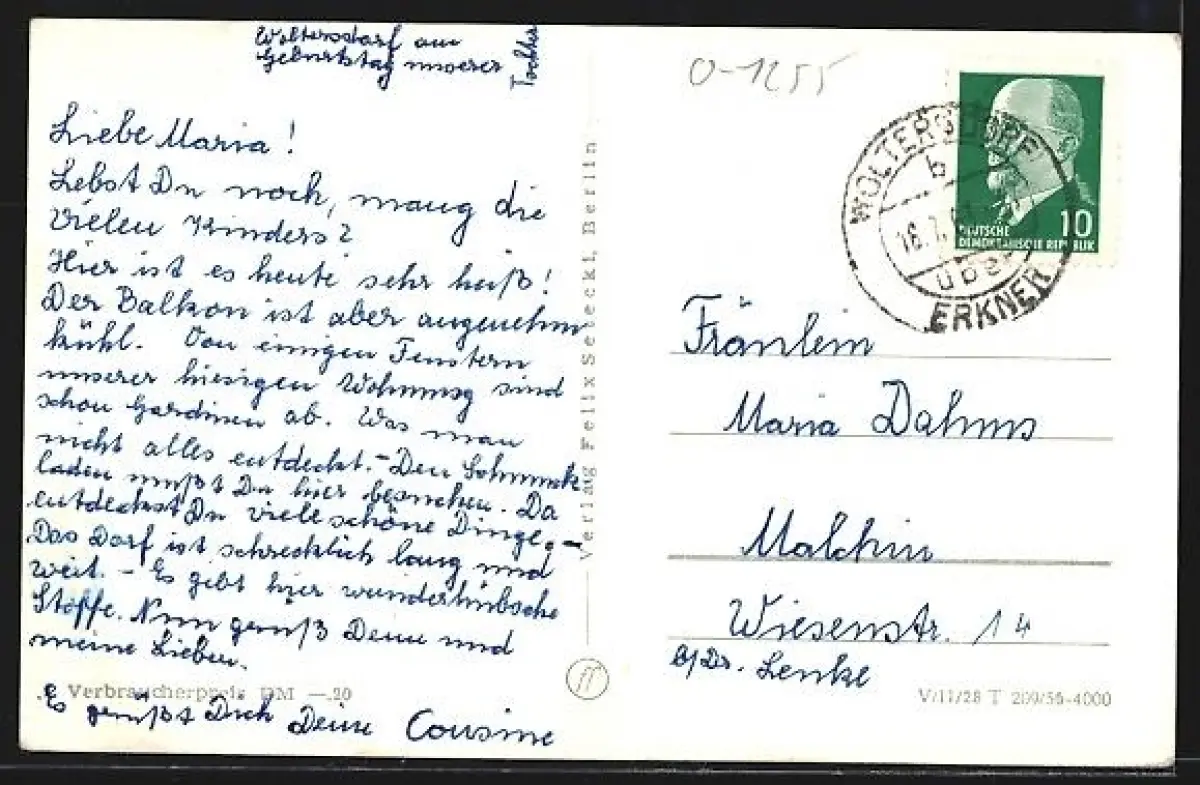 Woltersdorf am
Geburtstag unserer
Tochter
Liebe Maria!
Lebst Du noch, mang die
vielen Kinders?
Hier ist es heute sehr heiß!
Der Balkon ist aber angenehm
kühl. Von einigen Fenstern
unserer hiesigen Wohnung sind
schon Gardinen ab. Was man
nicht alles entdeckt. - Den Schmuck
laden mußt Du hier besuchen. Da
entdeckst Du viele schöne Dinge. -
Das Dorf ist schrecklich lang und
weit. - Es gibt hier wunderhübsche
Stoffe. Nun grüß Deine und
meine Lieben.
Es grüßt Dich Deine Cousine
Verbraucherpreis DM —.20
Verlag Felix Setecki, Berlin
ff
O-1255
WOLTERSDORF
b
16.7.
über
ERKNER
10
DEUTSCHE
DEMOKRATISCHE REPUBLIK
Fräulein
Maria Dahms
Malchin
Wiesenstr. 14
b/Dr. Lenke
V/11/28 T 209/56-4000